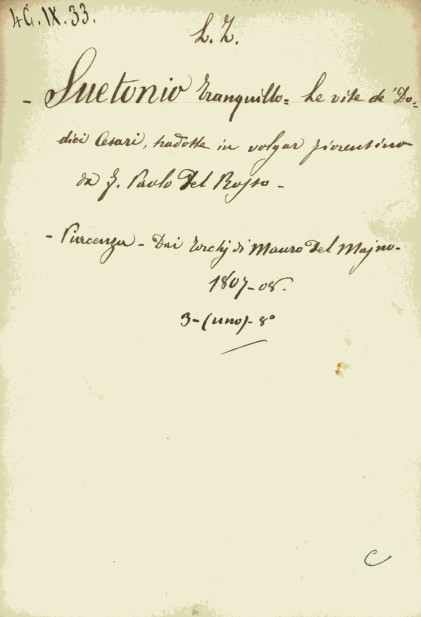 4G.IX.33.
L. Z.
- Suetonio Tranquillo= Le vite de' Do=
dici Cesari, tradotte in volgar fiorentino
da F. Paolo Del Rosso -
- Piacenza - Dai Torchj di Mauro Del Majno -
1807-08.
3-(uno)- 8°
C